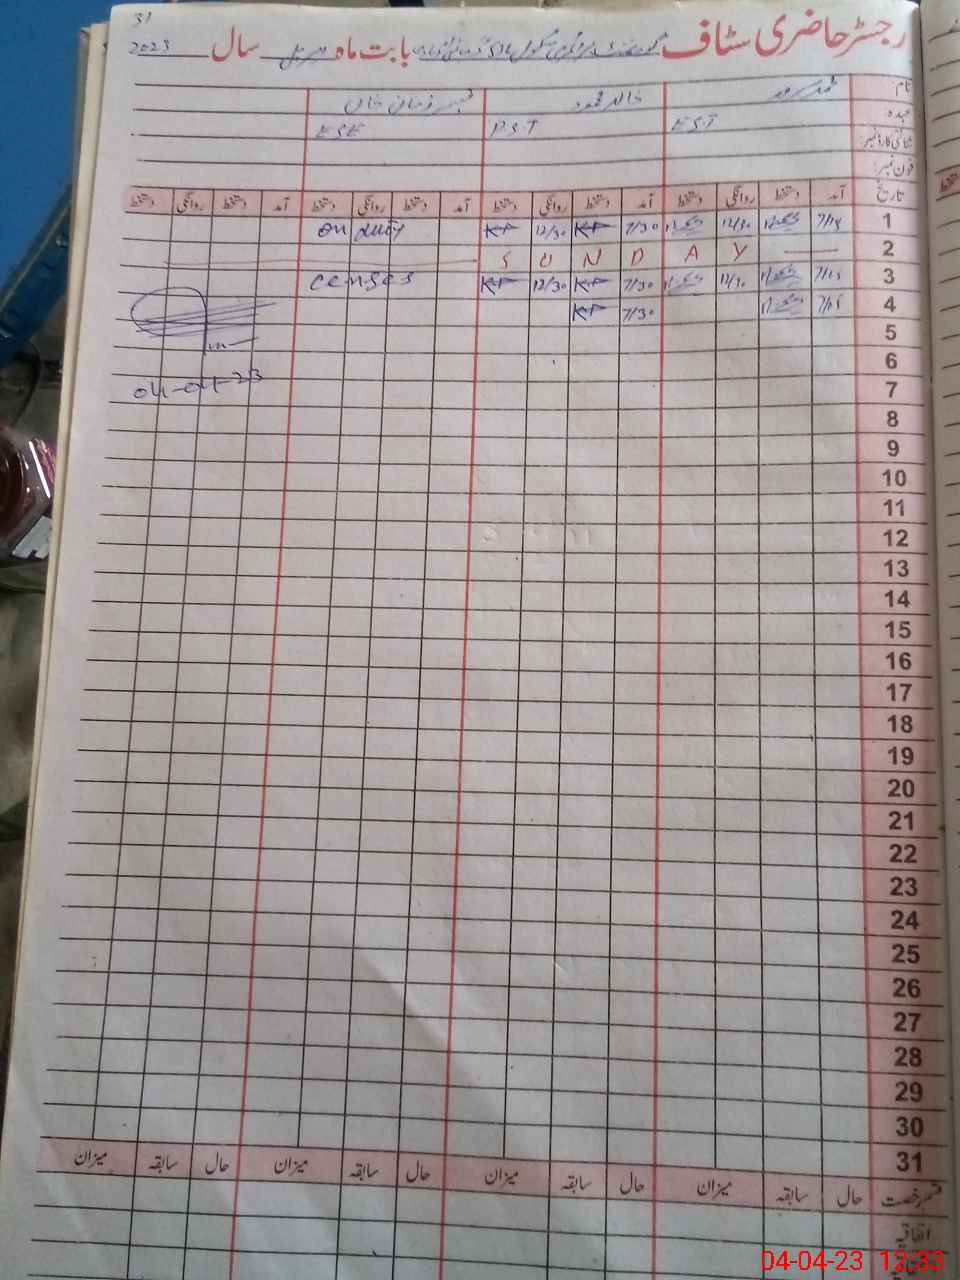 31
رجسٹر حاضری سٹاف گورنمنٹ پرائمری سکول بابت ماہ اپریل سال 2023
نام: محمد سرور خالد محمود زمان خان
عہدہ: EST P.S.T ESE
شناختی کارڈ نمبر:
فون نمبر:
تاریخ آمد دستخط روانگی دستخط آمد دستخط روانگی دستخط آمد دستخط روانگی دستخط آمد دستخط روانگی دستخط
1 7/15 12/30 7/30 KP 12/30 KP on duty
2 S U N D A Y
3 7/15 12/30 7/30 KP 12/30 KP censes
4 7/15 7/30 KP
5
6
7 04-04-23
8
9
10
11
12
13
14
15
16
17
18
19
20
21
22
23
24
25
26
27
28
29
30
31
قسم رخصت حال سابقہ میزان حال سابقہ میزان حال سابقہ میزان حال سابقہ میزان
اتفاقیہ
04-04-23 12:33